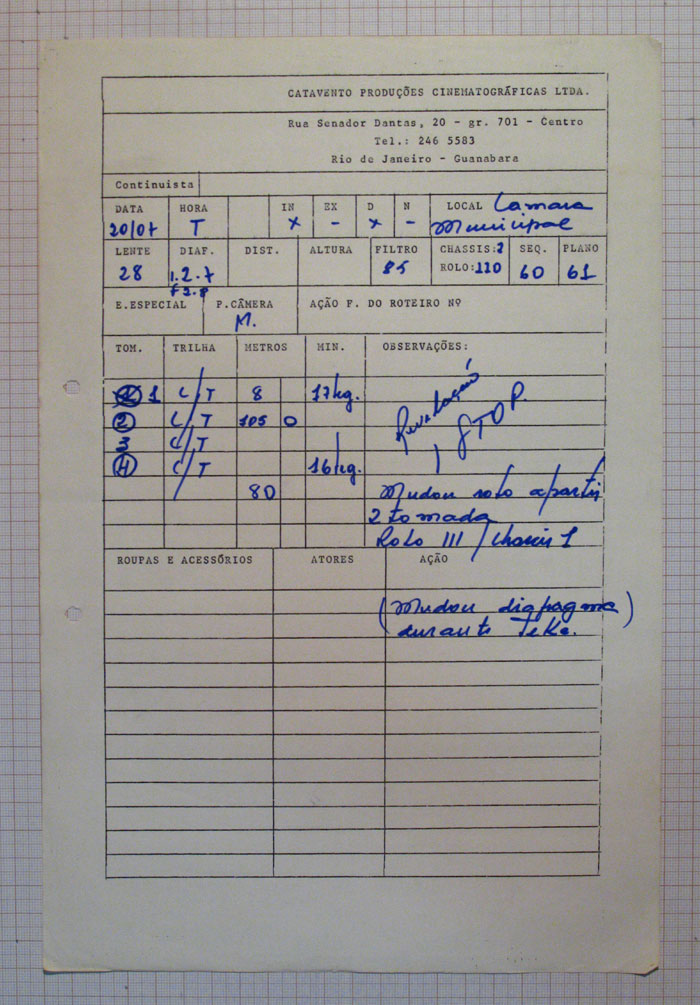 CATAVENTO PRODUÇÕES CINEMATOGRÁFICAS LTDA.
Rua Senador Dantas, 20 - gr. 701 - Centro
Tel.: 246 5583
Rio de Janeiro - Guanabara
Continuista
DATA HORA IN EX D N LOCAL Camara
20/07 T x - x - Municipal
LENTE DIAF. DIST. ALTURA FILTRO CHASSIS:2 SEQ. PLANO
28 1.2.7 85 ROLO:110 60 61
f 2.8
E.ESPECIAL P.CÂMERA AÇÃO F. DO ROTEIRO Nº
M.
TOM. TRILHA METROS MIN. OBSERVAÇÕES:
1 C/T 8 17kg.
2 C/T 105 0
3 C/T
4 C/T 16kg.
1 STOP.
80 Mudou rolo apartir
2 tomada
Rolo III / Chassis 1
ROUPAS E ACESSÓRIOS ATORES AÇÃO
(Mudou diafragma)
durante TeKe.